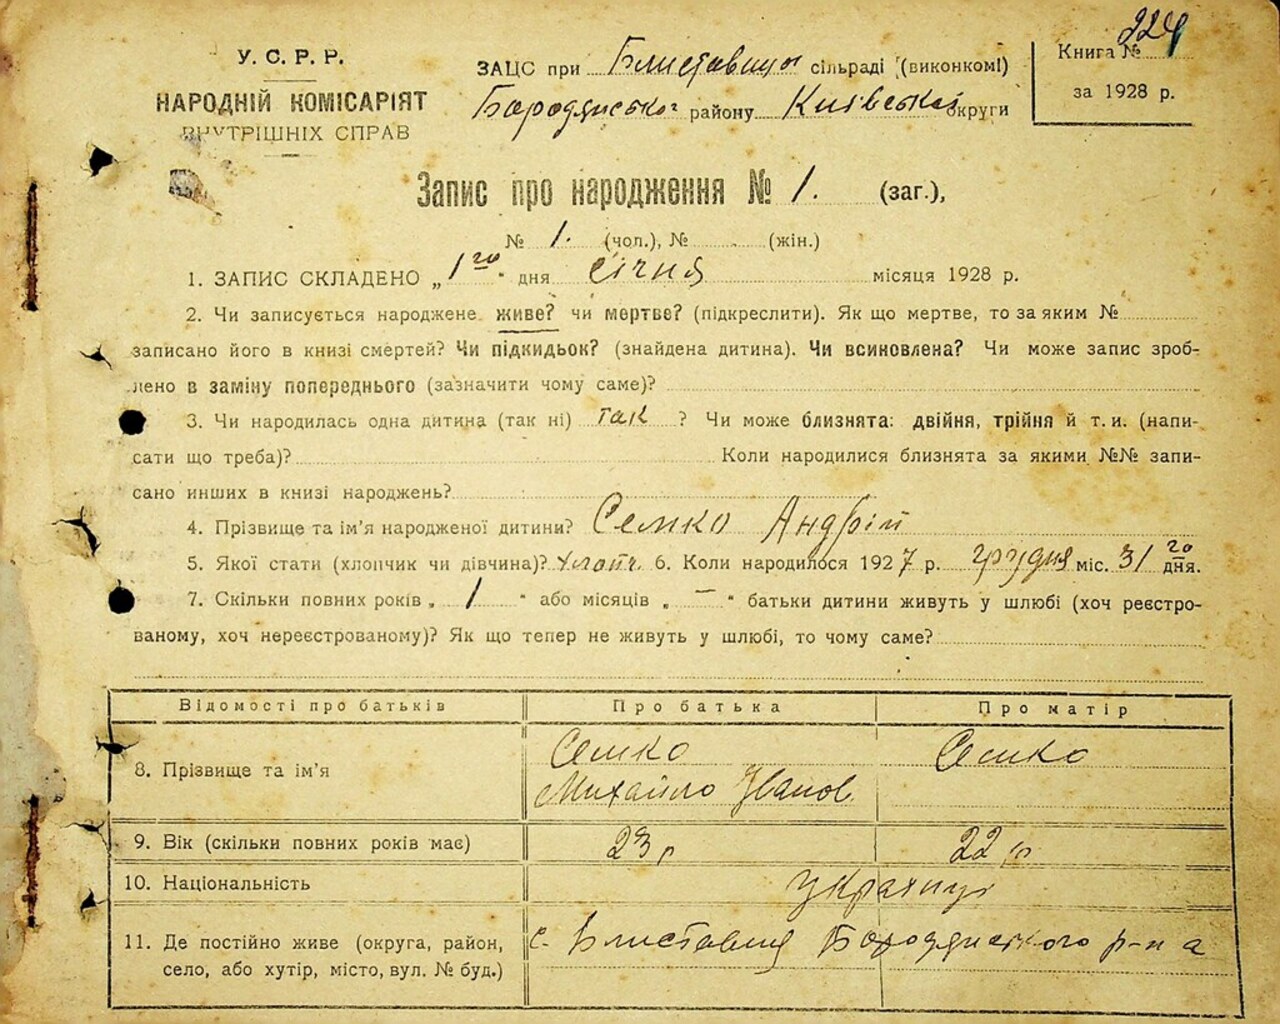 224
У. С. Р. Р.
НАРОДНІЙ КОМІСАРІЯТ
ВНУТРІШНІХ СПРАВ
ЗАЦС при Блиставиця сільраді (виконкомі)
Бородянського району Київської округи
Книга №
за 1928 р.
Запис про народження № 1. (заг.),
№ 1. (чол.), № (жін.)
1. ЗАПИС СКЛАДЕНО „ 1го " дня січня місяця 1928 р.
2. Чи записується народжене живе? чи мертве? (підкреслити). Як що мертве, то за яким №
записано його в книзі смертей? Чи підкидьок? (знайдена дитина). Чи всиновлена? Чи може запис зроб-
лено в заміну попереднього (зазначити чому саме)?
3. Чи народилась одна дитина (так ні) так ? Чи може близнята: двійня, трійня й т. и. (напи-
сати що треба)? Коли народилися близнята за якими №№ запи-
сано инших в книзі народжень?
4. Прізвище та ім'я народженої дитини? Семко Андрій
5. Якої стати (хлопчик чи дівчина)? хлопч. 6. Коли народилося 1927 р. грудня міс. 31го дня.
7. Скільки повних років „ 1 " або місяців „ — " батьки дитини живуть у шлюбі (хоч реєстро-
ваному, хоч нереєстрованому)? Як що тепер не живуть у шлюбі, то чому саме?
Відомості про батьків Про батька Про матір
8. Прізвище та ім'я Семко Михайло Іванов Семко
9. Вік (скільки повних років має) 23 р 22 р
10. Національність українці
11. Де постійно живе (округа, район,
село, або хутір, місто, вул. № буд.)
с. Блиставиця Бородянського р-на